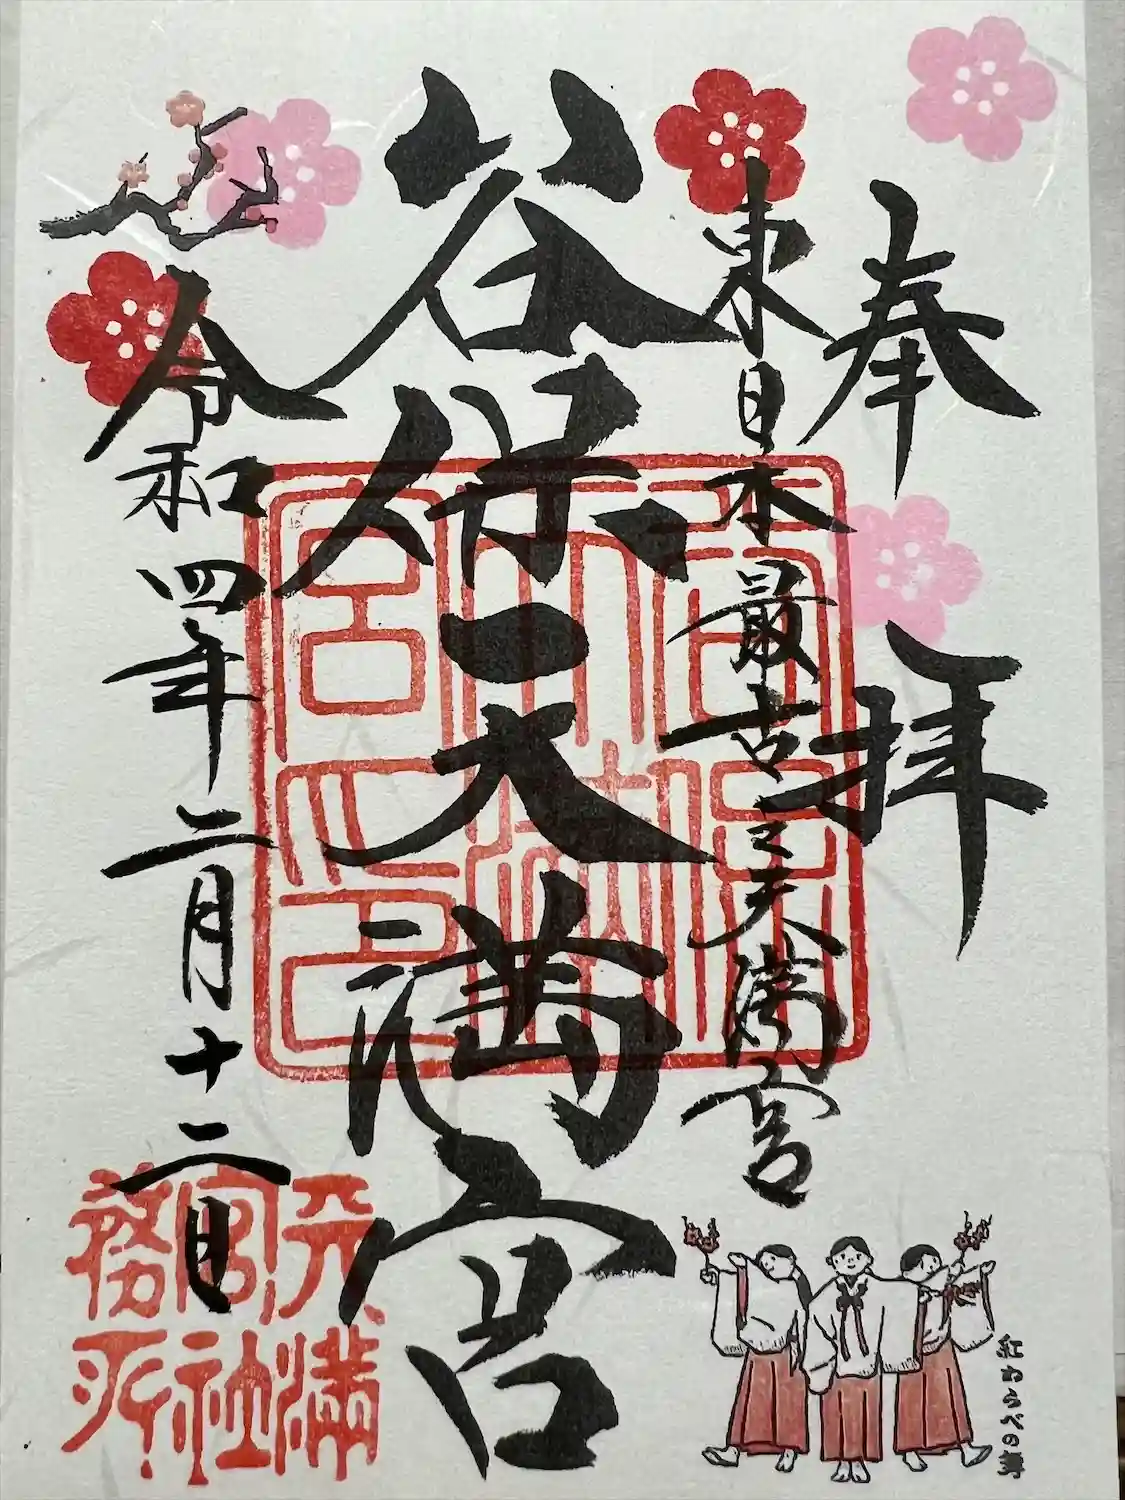 奉拝
東日本最古之天満宮
谷保天満宮
令和四年二月十二日
谷保天満宮
天満宮社務所
紅わらべの舞